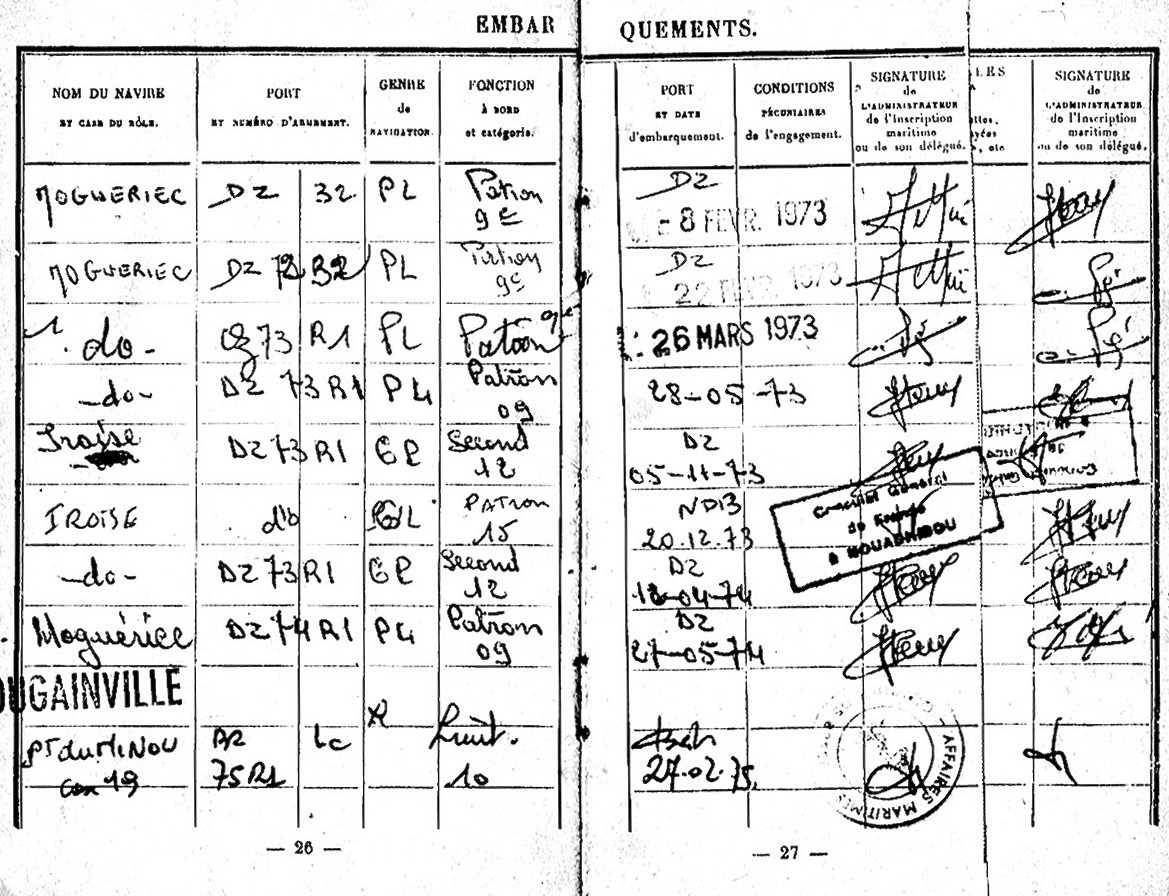 EMBARQUEMENTS.
NOM DU NAVIRE
ET CASE DU RÔLE.
PORT
ET NUMÉRO D'ARMEMENT.
GENRE
de
NAVIGATION.
FONCTION
à BORD
et catégorie.
PORT
ET DATE
d'embarquement.
CONDITIONS
PÉCUNIAIRES
de l'engagement.
SIGNATURE
de
L'ADMINISTRATEUR
de l'Inscription
maritime
ou de son délégué.
SIGNATURE
de
L'ADMINISTRATEUR
de l'Inscription
maritime
ou de son délégué.
MOGUERIEC DZ 32 PL Patron DZ
9e - 8 FEVR. 1973
MOGUERIEC DZ 72 B2 PL Patron DZ
9e 22 FEVR. 1973
1. do - 73 R1 PL Patron 9e 26 MARS 1973
-do- DZ 73 R1 PL Patron 28-05-73
09
Iroise DZ 73 R1 GP Second DZ
12 05-11-73
IROISE do PATRON NDB
15 20.12.73
-do- DZ 73 R1 GP Second DZ
12 18-04-74
Consulat Général
de France
à NOUADHIBOU
Moguériec DZ 74 R1 PL Patron DZ
09 27-05-74
OUGAINVILLE
Pt du MINOU Lc Lieut.
Case 19 75 R1 10 27.02.75.
AFFAIRES MARITIMES
— 26 —
— 27 —